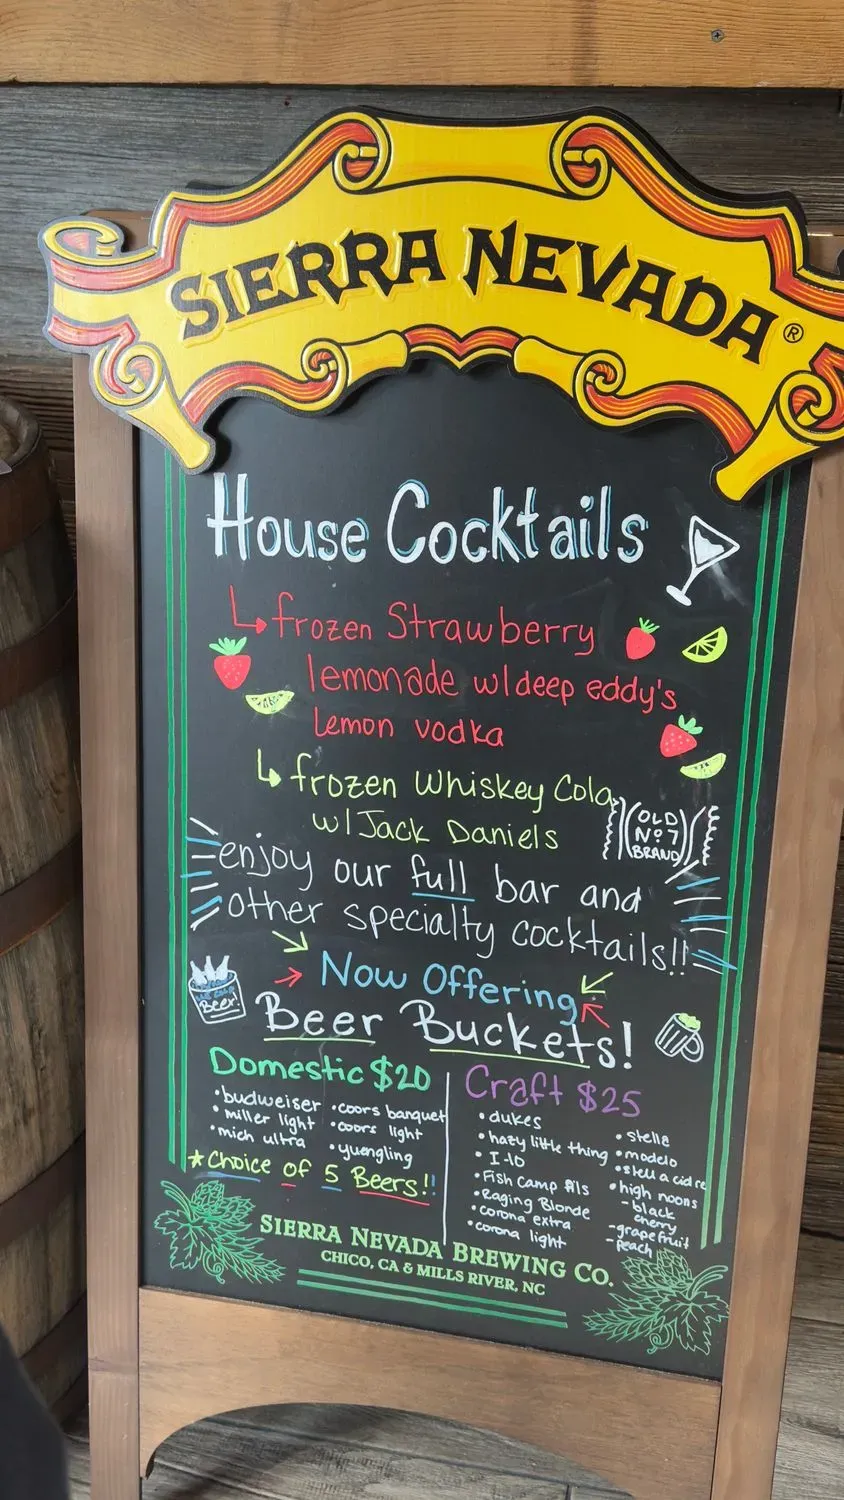 SIERRA NEVADA®
House Cocktails
frozen Strawberry
lemonade w/deep eddy's
lemon vodka
frozen Whiskey Cola
w/Jack Daniels
OLD
Nº7
BRAND
enjoy our full bar and
other specialty cocktails!!
Now Offering
Beer Buckets!
Beer!
Domestic $20
•budweiser
•miller light
•mich ultra
•coors banquet
•coors light
•yuengling
*Choice of 5 Beers!!
Craft $25
•dukes
•hazy little thing
•I-10
•Fish Camp Pils
•Raging Blonde
•corona extra
•corona light
•stella
•modelo
•stella cidre
•high noons
-black
cherry
-grapefruit
-peach
SIERRA NEVADA BREWING CO.
CHICO, CA & MILLS RIVER, NC